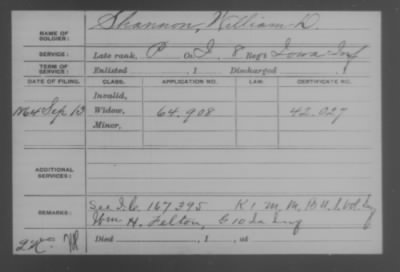 NAME OF SOLDIER: Shannon, William D.
SERVICE: Late rank, P Co. I, 8 Reg't Iowa Inf
TERM OF SERVICE: Enlisted , 1 Discharged , 1
DATE OF FILING. CLASS. APPLICATION NO. LAW. CERTIFICATE NO.
Invalid,
1864 Sep 13 Widow, 64.908 42.027
Minor,
ADDITIONAL SERVICES:
REMARKS: See I.C. 167395 K 1 M. M. B. U.S. Vol. Inf
Wm H. Felton, G 10 Ia Inf
Died , 1 , at